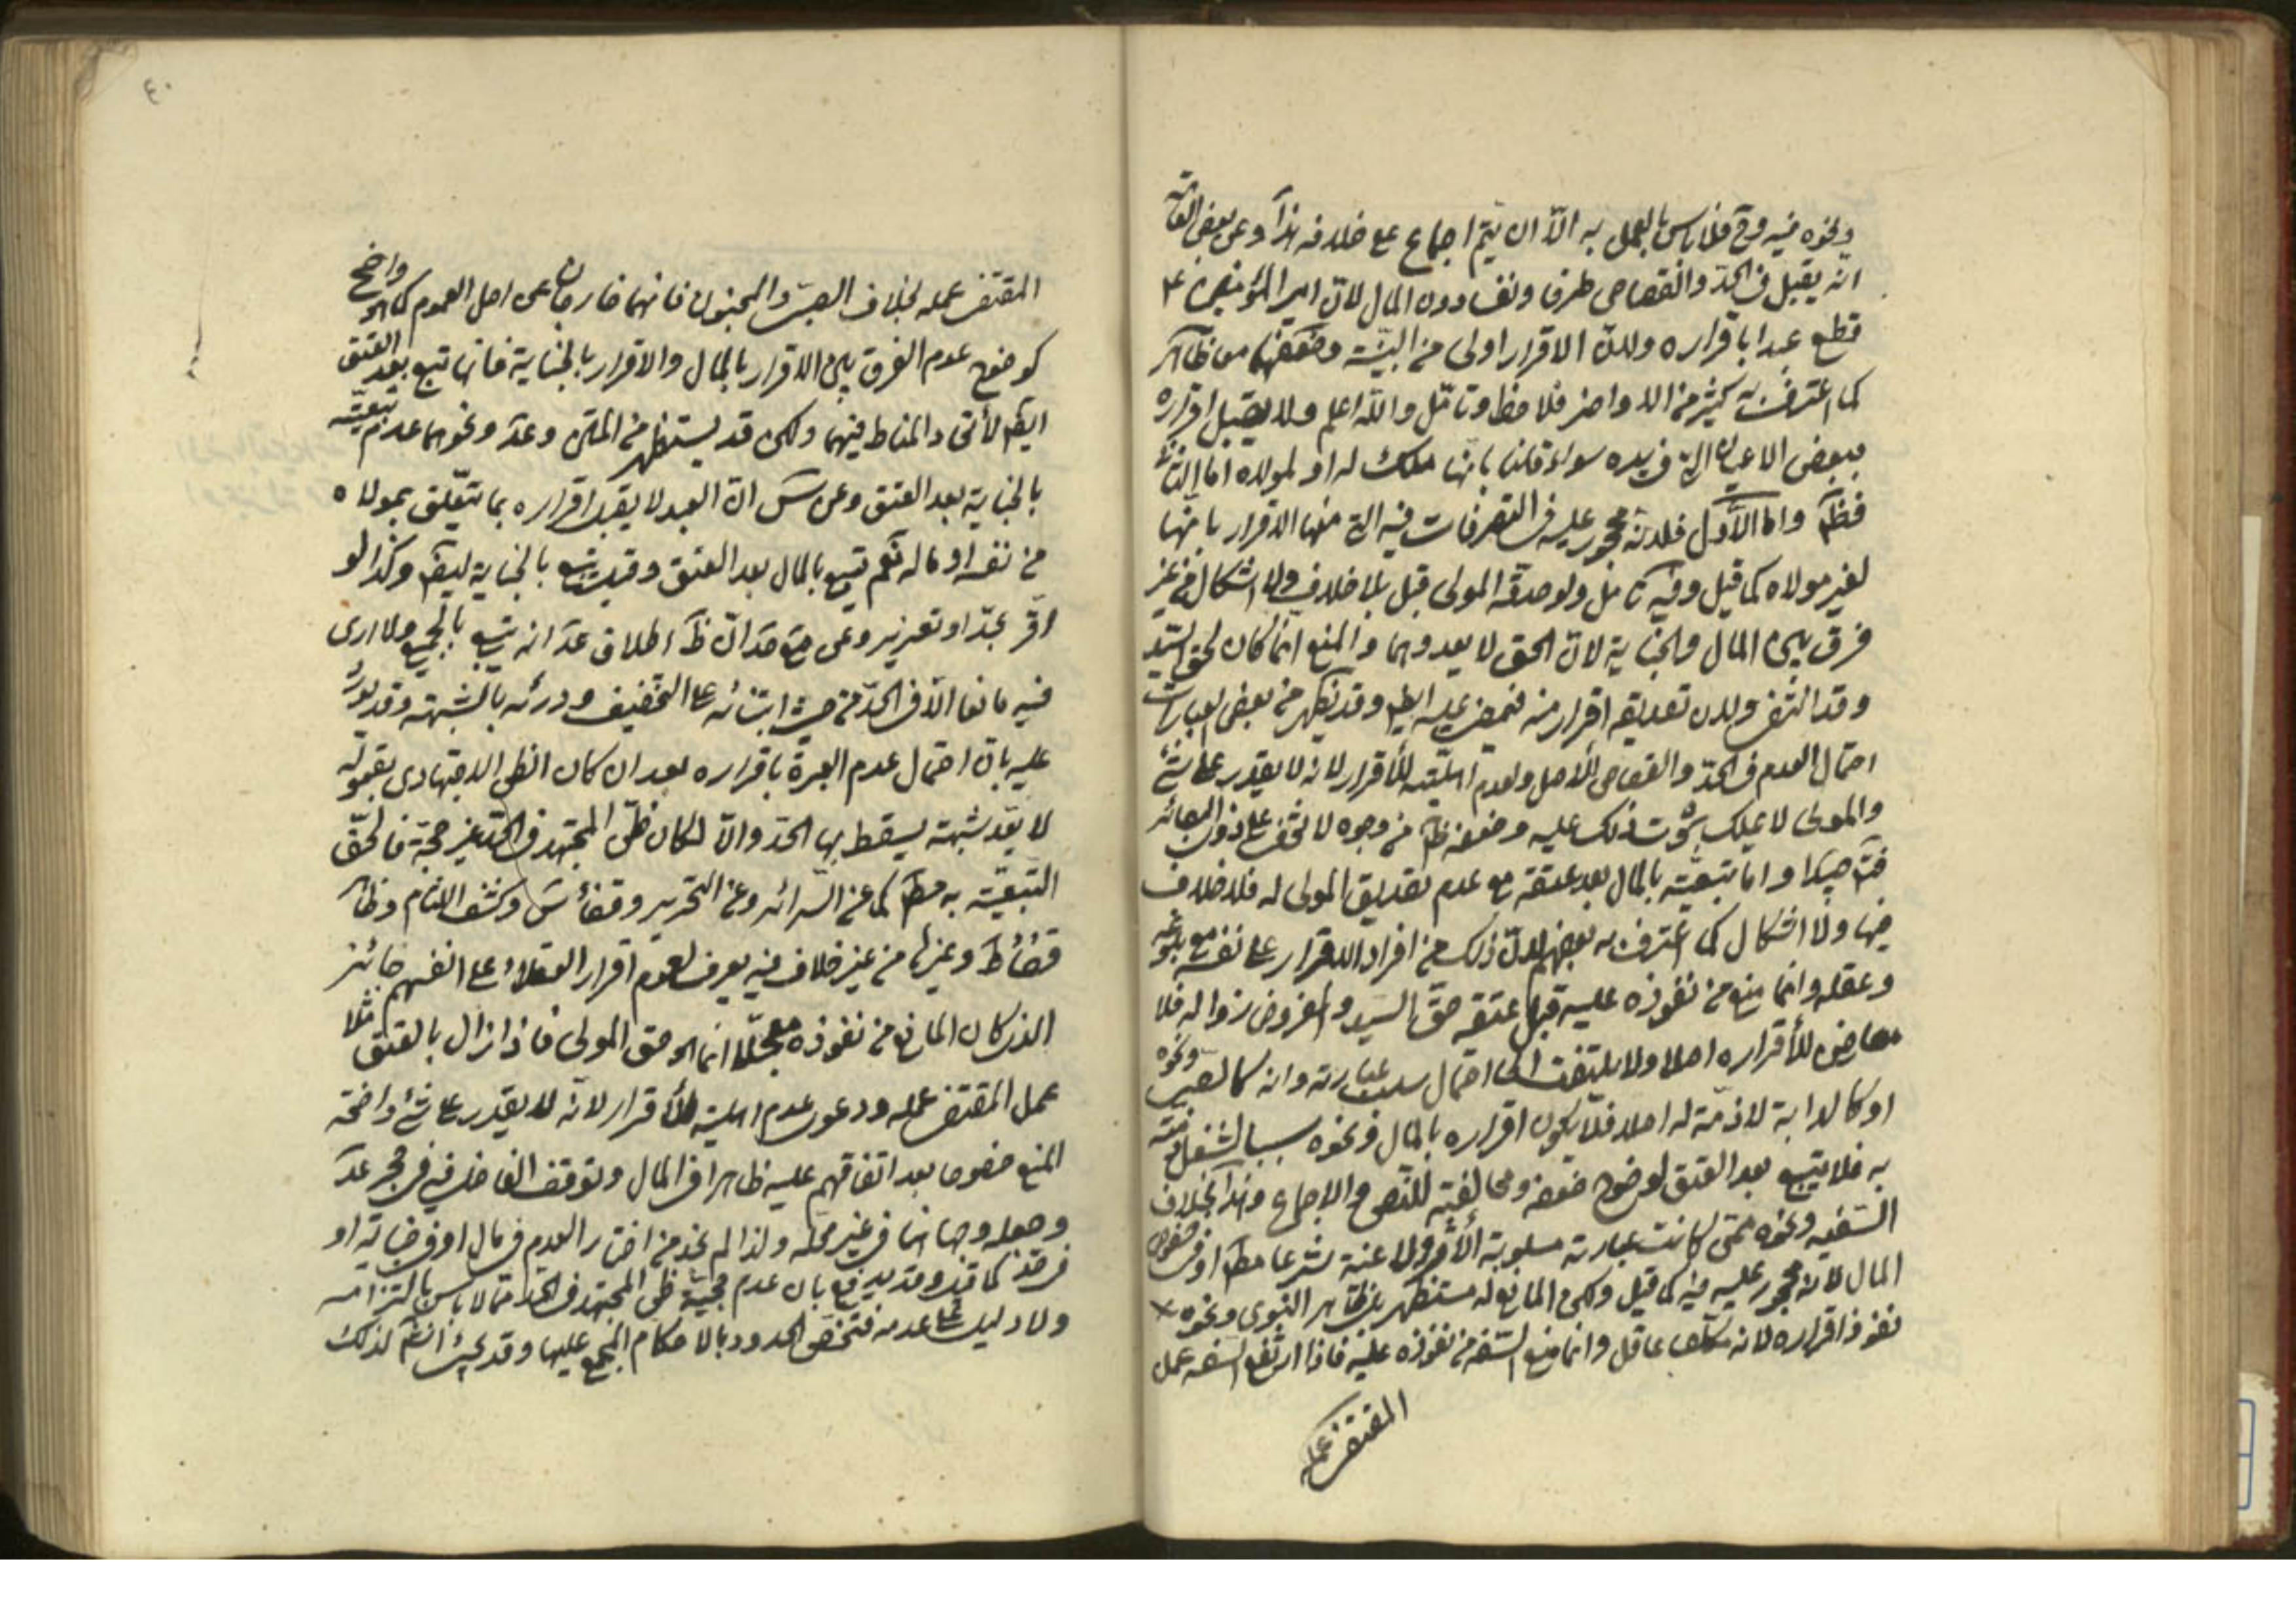 ونحوه فيه وح فلا باس بالعمل به الّا ان يتم اجماع على خلافه هذا وعن بعض العامة
انه يقبل في الحد والقصاص طرفا ونفسا دون المال لان امير المؤمنين ع
قطع عبدا باقراره ولان الاقرار اولى من البينة وضعفهما معا ظاهر
كما اعترف به كثير من الاواخر فلاحظ وتامّل والله اعلم ولا يقبل اقراره
ببعض الاعيان التي في يده سواء قلنا بانها ملك له او لمولاه اما الثاني
فظ واما الاول فلانه محجور عليه في التصرفات فيه التي منها الاقرار بانها
لغير مولاه كما قيل وفيه تامل ولو صدقه المولى قبل بلا خلاف ولا اشكال من غير
فرق بين المال والجناية لان الحق لا يعدوهما والمنع انما كان لحق السيد
وقد انتفى ولان تصديقه اقرار منه فيمضى عليه ايض وقد يظهر من بعض العبارات
احتمال العدم في الحد والقصاص للاصل ولعدم اهليته للاقرار لانه لا يقدر على شئ
والمولى لا يملك ثبوت ذلك عليه وضعفه ظ من وجوه لا تخفى على ذوى البصائر
فت جيدا واما تبعيته بالمال بعد عتقه مع عدم تصديق المولى له فلا خلاف
فيها ولا اشكال كما اعترف به بعضهم لان ذلك من افراد الاقرار على نفسه مع بلوغه
وعقله وانما منع من نفوذه عليه قبل عتقه حق السيد والمفروض زواله فلا
معارض لاقراره اصلا ولا يلتفت الى احتمال سلب عبارته وانه كالصبي ونحوه
او كالدابة لا ذمة له اصلا فلا يكون اقراره بالمال ونحوه سببا لشغل ذمته
به فلا يتبع بعد العتق لوضوح ضعفه ومخالفته للنص والاجماع وهذا بخلاف
السفيه ونحوه ممن كانت عبارته مسلوبة الاثر ولاغية شرعا مط او في خصوص
المال لانه محجور عليه فيه كما قيل ولكن المانع له مستظهر بظاهر النبوى ونحوه
نفوذ اقراره لانه مكلف عاقل وانما منع السفه من نفوذه عليه فاذا ارتفع السفه عمل
المقتضى عمله
٤٠
المقتضى عمله بخلاف الصبي والمجنون فانهما خارجان عن اصل العموم كما هو واضح
كوضوح عدم الفرق بين الاقرار بالمال والاقرار بالجناية فانها تتبع بعد العتق
ايض لاتحاد المناط فيهما ولكن قد يستظهر من المتن وعد ونحوهما عدم تبعيته
بالجناية بعد العتق وعن س ان العبد لا يقبل اقراره بما يتعلق بمولاه
من نفسه او ماله نعم يتبع بالمال بعد العتق وقيل يتبع بالجناية ايض وكذا لو
اقر بحد او تعزير وعن مع صد ان ظ اطلاق عد انه يتبع بالجميع ولا ارى
فيه مانعا الا في الحد من حيث ابتنائه على التخفيف ودرئه بالشبهة وقد يورد
عليه بان احتمال عدم العبرة باقراره بعد ان كان الظن الاجتهادى بقبوله
لا يعد شبهة يسقط بها الحد والا لكان ظن المجتهد في الحد غير حجة فالحق
التبعية به مط كما عن السرائر وعن التحرير وقضاء س وكشف اللثام وظاهر
قضاء ط وغيرها من غير خلاف فيه يعرف لعموم اقرار العقلاء على انفسهم جائز
الذى كان المانع من نفوذه معجلا انما هو حق المولى فاذا زال بالعتق مثلا
عمل المقتضى عمله ودعوى عدم اهليته للاقرار لانه لا يقدر على شئ واضحة
المنع خصوصا بعد اتفاقهم عليه ظاهرا في المال وتوقف الفاضل فيه في حجر عد
وجعله وجها انما في غير محله ولذا لم نجد من اختار العدم في مال او في جناية او
في حد كما قد وقد يدفع بان عدم حجية ظن المجتهد في الحد مما لا باس بالتزامه
ولا دليل على عدمه فتختص الحدود بالاحكام المجمع عليها وقد يجئ انشم لذلك